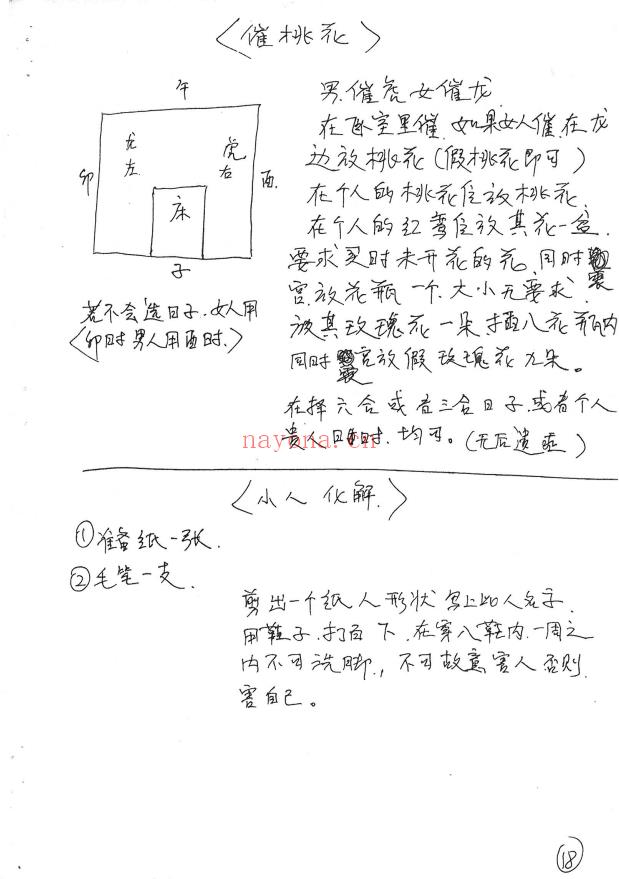 〈催桃花〉
午
卯
龙
左
虎
右
酉.
床
子
男.催虎女催龙.
在卧室里催.如果女人催.在龙
边放桃花(假桃花即可)
在个人的桃花位放桃花.
在个人的红鸾位放真花一盆
要求买时未开花的花.同时
宫放花瓶一个.大小无要求.
真玫瑰花一朵.插入花瓶内
同时 宫放假玫瑰花九朵。
在择六合或者三合日子.或者个人
贵人日 时.均可。(无后遗症)
若不会选日子.女人用
〈卯时男人用酉时.〉
nayona.cn
〈小人化解.〉
①准备纸一张.
②毛笔一支.
剪出一个纸人形状写上此人名字.
用鞋子.打百下.在穿入鞋内.一周之
内不可洗脚.,不可故意害人否则
害自己。
18